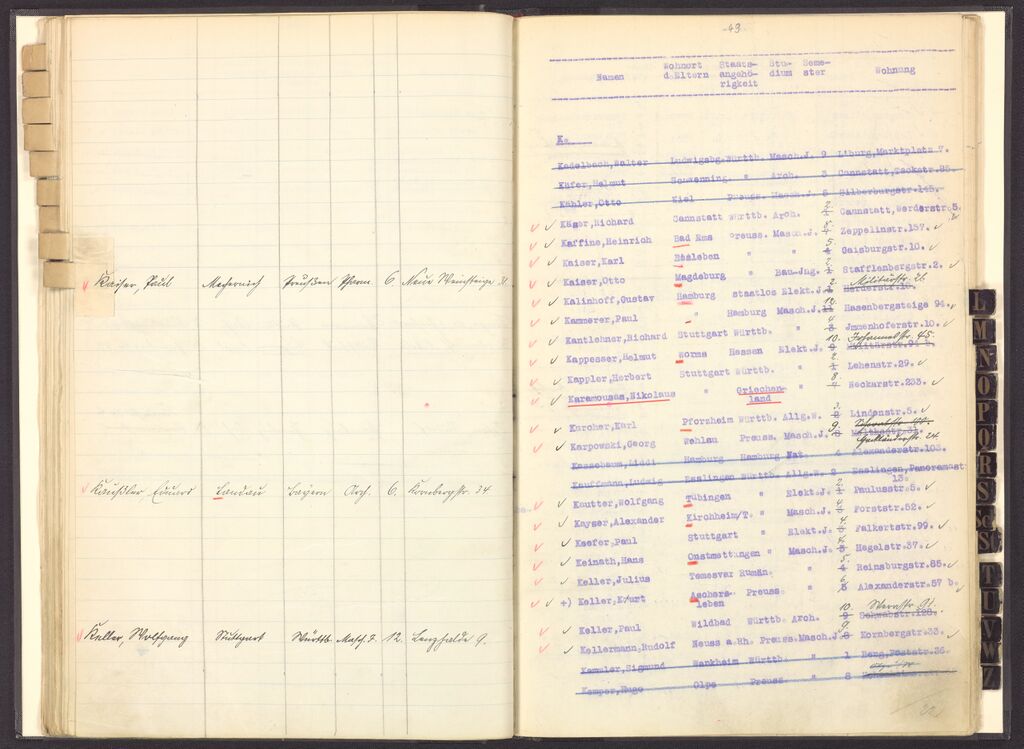 Kaiser, Paul Mechernich Preußen Pharm 6. Neue Weinsteige
Landau Bayern Arch. 6. Kornbergstr. 34
Keller, Wolfgang Stuttgart Württb. Masch.J. 12. Lenzhalde 9.
-49-
Namen Wohnort d.Eltern Staats-angehö-rigkeit Stu-dium Seme-ster Wohnung
K.
Kadelbach,Walter Ludwigsbg.Württb. Masch.J. 9 Marktplatz 7.
Käfer,Helmut Schwenning. " Arch. 3 Cannstatt,Teckstr.
Kähler,Otto Kiel Preuss. Masch.J. 8 Silberburgstr.145.
Käser,Richard Cannstatt Württb. Arch. 2 Cannstatt,Werderstr.5.
Kaffine,Heinrich Bad Ems preuss. Masch.J. Zeppelinstr.157.
Kaiser,Karl " " 5 Gaisburgstr.10.
Kaiser,Otto Magdeburg " Bau-Jng. Stafflenbergstr.2.
Kalinhoff,Gustav Hamburg staatlos Elekt.J. 2 Militärstr.
Kammerer,Paul " Hamburg Masch.J. 12. Hasenbergsteige 94.
Kantlehner,Richard Stuttgart Württb. " 4 Jmmenhoferstr.10.
Kappesser,Helmut Worms Hessen Elekt.J. 10. Johannesstr. 45.
Kappler,Herbert Stuttgart Württb. " 2 Lehenstr.29.
Karamousas,Nikolaus " Griechen-land " 8 Neckarstr.233.
Karcher,Karl Pforzheim Württb. Allg.W. 3 Lindenstr.5.
Karpowski,Georg Wehlau Preuss. Masch.J. 9. Hackländerstr. 24
Kassebaum,Liddi Hamburg Hamburg Nat 4 Alexanderstr.103.
Kauffmann,Ludwig Esslingen Württb. Allg.W. 2 Esslingen,Panoramastr
13.
Kautter,Wolfgang Tübingen " Elekt.J. 2 Paulusstr.5.
Kayser,Alexander Kirchheim/T. " Masch.J. 4 Forststr.52.
Keefer,Paul Stuttgart " Elekt.J. Falkertstr.99.
Keinath,Hans Onstmettingen " Masch.J. 4 Hegelstr.37.
Keller,Julius Temesvar Rumän. " 5 Reinsburgstr.85.
+) Keller,Kurt Aschers-leben Preuss " 6 Alexanderstr.57 b.
Keller,Paul Wildbad Württb. Arch. 10. Werastr. 91.
Kellermann,Rudolf Neuss a.Rh. Preuss.Masch.J. 9 Kornbergstr.33.
Kemmler,Sigmund Wankheim Württb. " 1 Berg,Poststr.36.
Kemper,Hugo Olpe Preuss. " 8
L
M
N
O
P
Q
R
S
Sch
S
T
U
V
W
Z